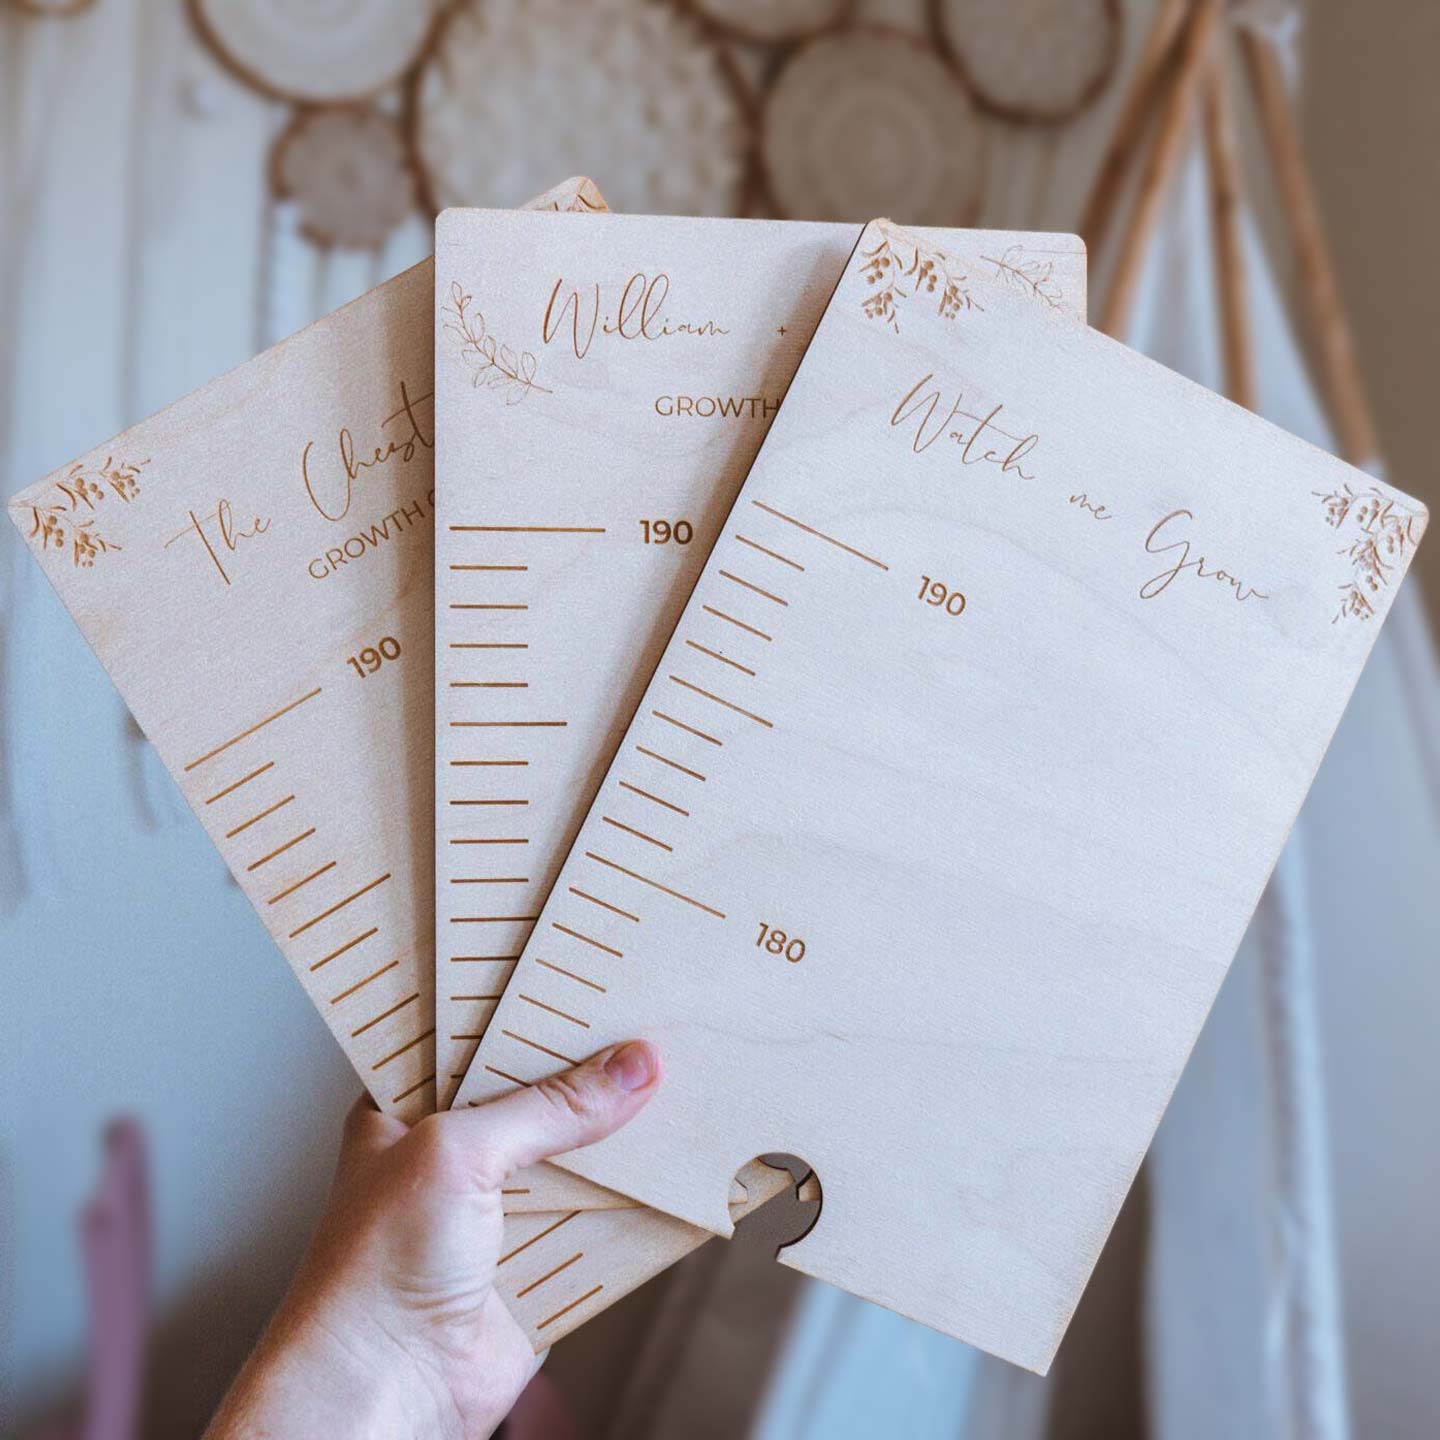 The
GROWTH
190
William +
GROWTH
190
Watch me Grow
190
180